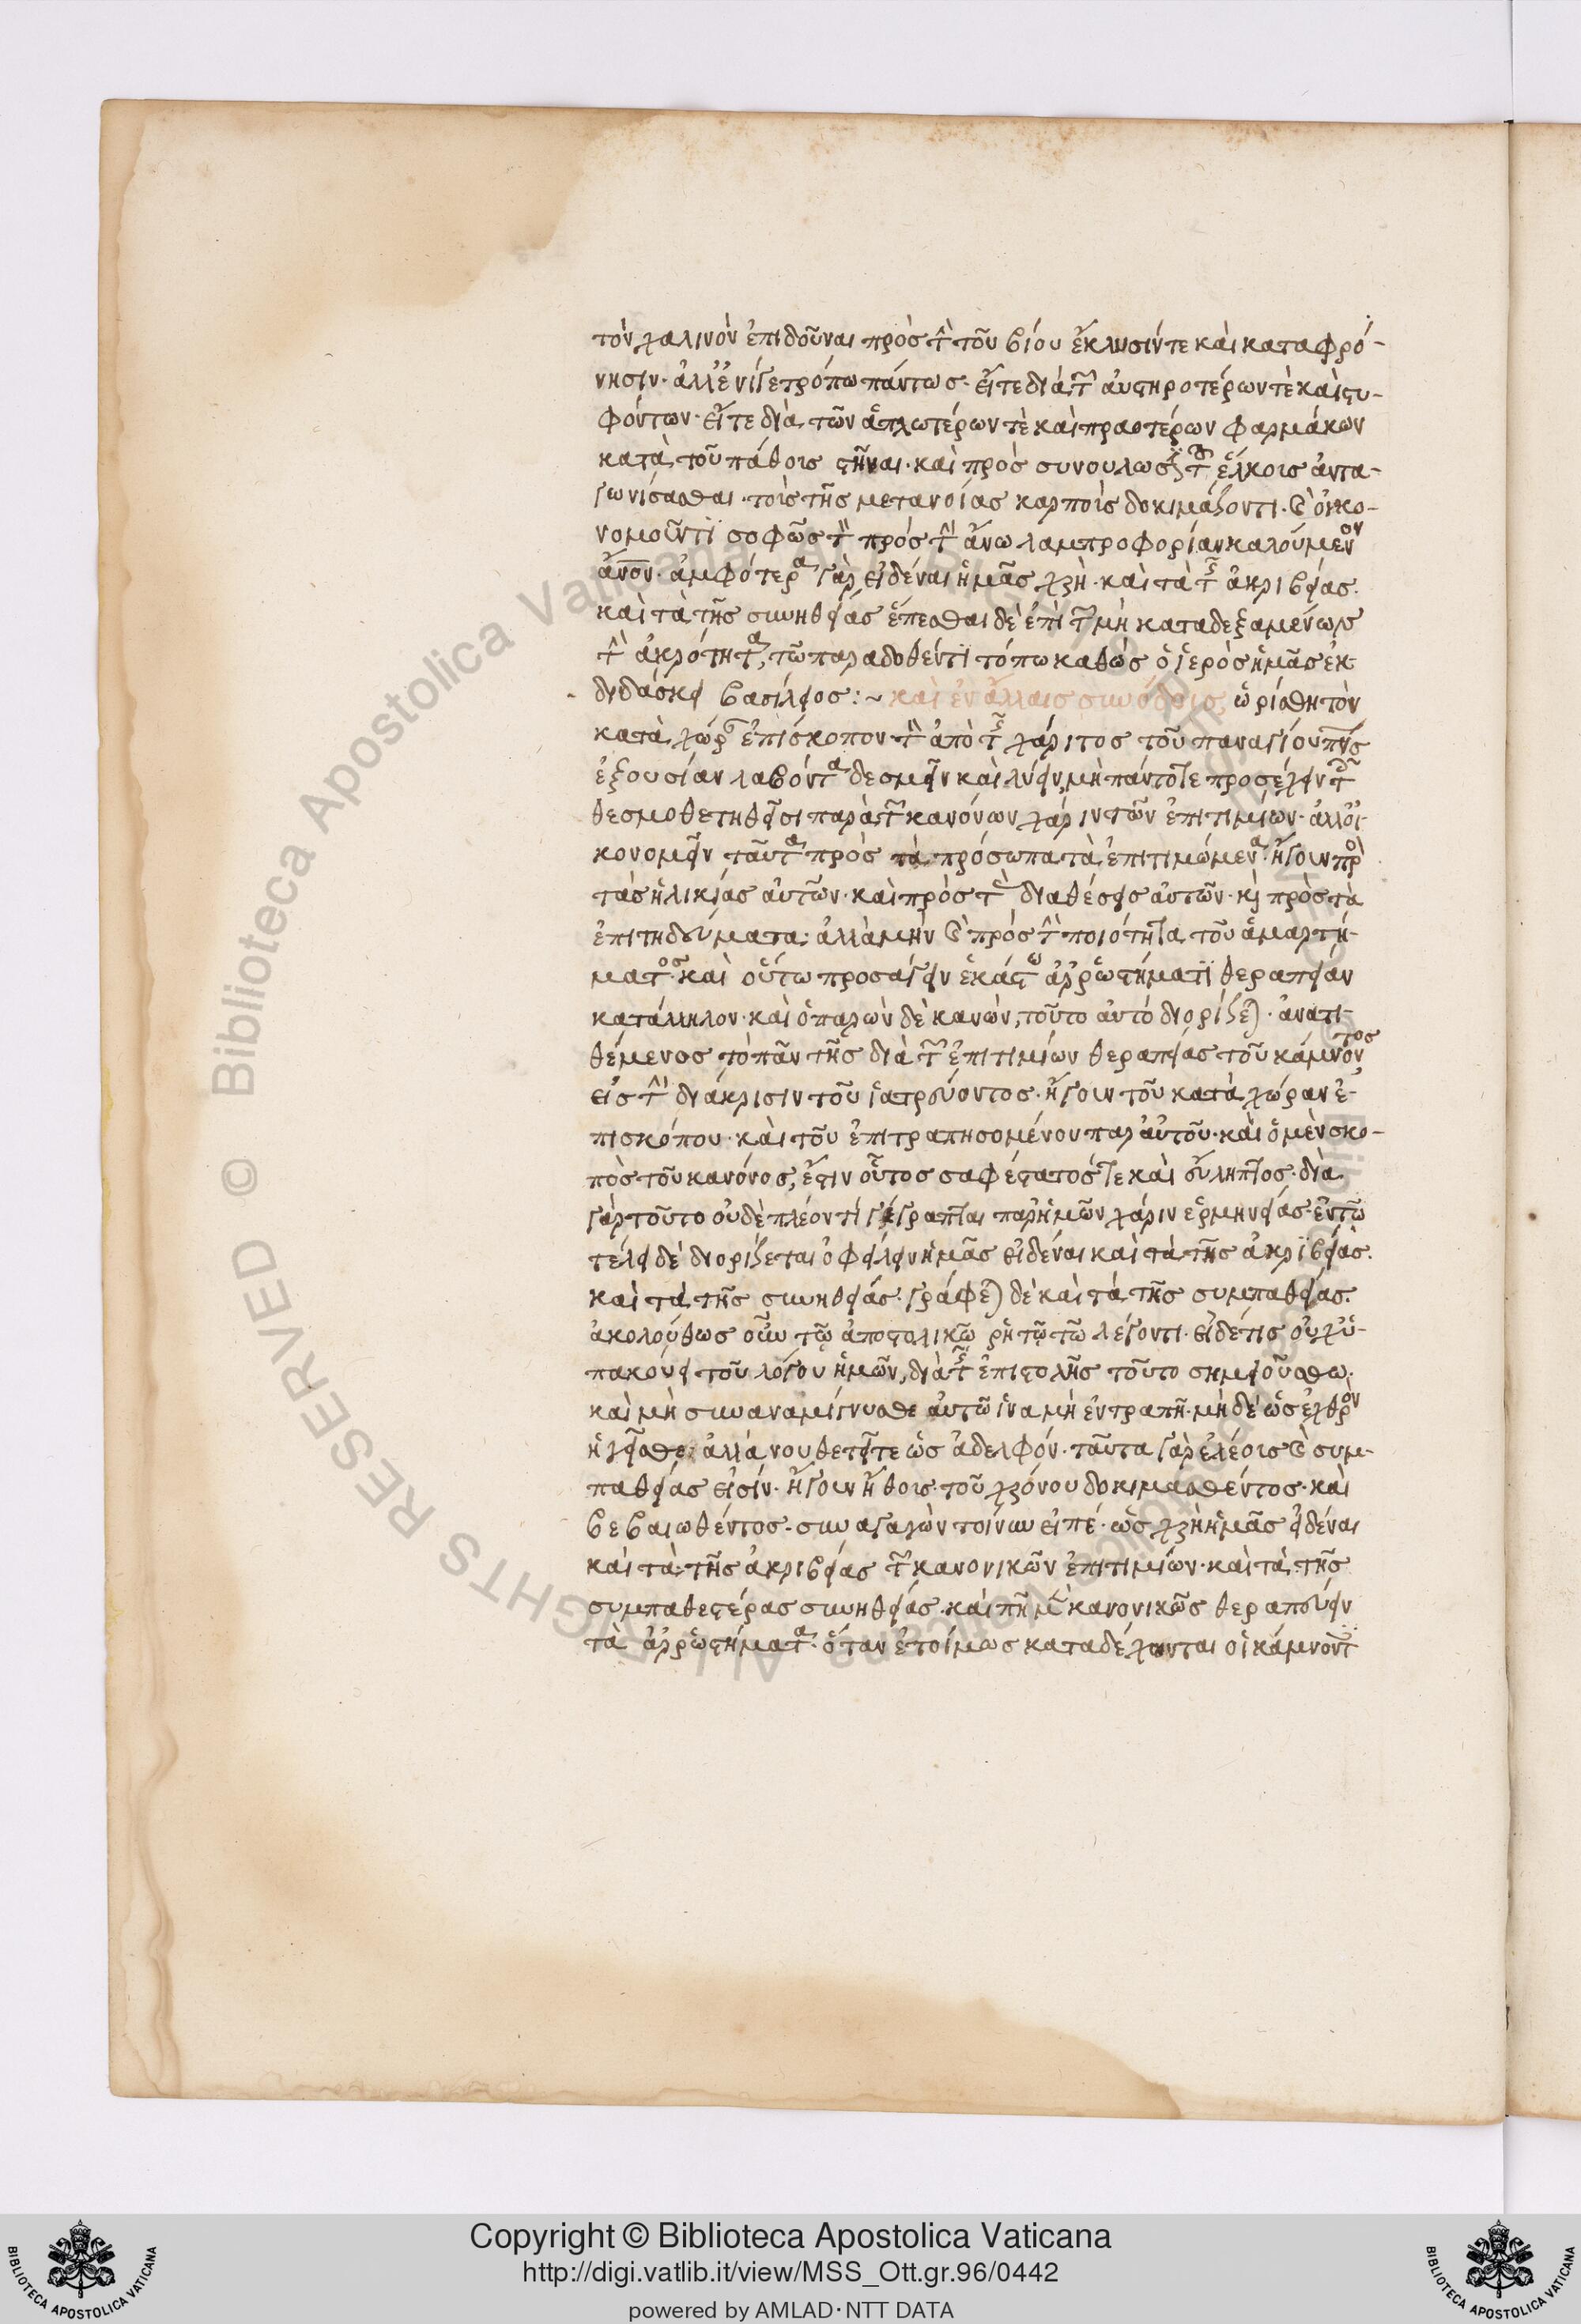 τὸν χαλινὸν ἐπιδοῦναι πρὸς τὴν τοῦ βίου ἔκλυσίν τε καὶ καταφρό-
νησιν· ἀλλ' ἑνί γε τρόπω πάντως· εἴτε διὰ τῶν αὐστηροτέρων τὲ καὶ στυ-
φόντων· εἴτε διὰ τῶν ἁπλωτέρων τὲ καὶ πραοτέρων φαρμάκων
κατὰ τοῦ πάθους στῆναι· καὶ πρὸς συνούλωσιν τοῦ ἕλκους ἀντα-
γωνίσασθαι· τοῖς τῆς μετανοίας καρποῖς δοκιμάζοντι· καὶ οἰκο-
νομοῦντι σοφῶς τὸν πρὸς τὴν ἄνω λαμπροφορίαν καλούμενον
ἄνον· ἀμφότερα γὰρ εἰδέναι ἡμᾶς χρὴ· καὶ τὰ τῆς ἀκριβείας·
καὶ τὰ τῆς συνηθείας ἕπεσθαι δὲ ἐπὶ τῶν μὴ καταδεξαμένων
τὴν ἀκρότητα, τῶ παραδοθέντι τόπω καθὼς ὁ ἱερὸς ἡμᾶς ἐκ-
διδάσκει βασίλειος:~ καὶ ἐν ἄλλαις συνόδοις, ὡρίσθη τὸν
κατὰ χώραν ἐπίσκοπον τὸν ἀπὸ τῆς χάριτος τοῦ παναγίου πνς
ἐξουσίαν λαβόντα δεσμεῖν καὶ λύειν, μὴ πάντοτε προσέχειν τοῖς
θεσμοθετηθεῖσι παρὰ τῶν κανόνων χάριν τῶν ἐπιτιμίων· ἀλλ' οἰ-
κονομεῖν ταῦτα πρὸς τὰ πρόσωπα τὰ ἐπιτιμώμενα· ἤγουν πρὸς
τὰς ἡλικίας αὐτῶν· καὶ πρὸς τὰς διαθέσεις αὐτῶν· καὶ πρὸς τὰ
ἐπιτηδεύματα· ἀλλὰ μὴν καὶ πρὸς τὴν ποιότητα τοῦ ἁμαρτή-
ματος· καὶ οὕτω προσάγειν ἑκάστω ἀῤῥωστήματι θεραπείαν
κατάλληλον· καὶ ὁ παρὼν δὲ κανὼν, τοῦτο αὐτὸ διορίζεται· ἀνατι-
θέμενος τὸ πᾶν τῆς διὰ τῶν ἐπιτιμίων θεραπείας τοῦ κάμνοντος
εἰς τὴν διάκρισιν τοῦ ἰατρεύοντος· ἤγουν τοῦ κατὰ χώραν ἐ-
πισκόπου· καὶ τοῦ ἐπιτραπησομένου παρ' αὐτοῦ· καὶ ὁ μὲν σκο-
πὸς τοῦ κανόνος, ἔστιν οὗτος σαφέστατός τε καὶ εὔληπτος· διὰ
γὰρ τοῦτο οὐδὲ πλέον τί γέγραπται παρ' ἡμῶν χάριν ἑρμηνείας· ἐν τῶ
τέλει δὲ διορίζεται ὀφείλειν ἡμᾶς εἰδέναι καὶ τὰ τῆς ἀκριβείας·
καὶ τὰ τῆς συνηθείας· γράφεται δὲ καὶ τὰ τῆς συμπαθείας·
ἀκολούθως οὖν τῷ ἀποστολικῷ ῥητῷ τῶ λέγοντι· εἰ δέ τις οὐχ ὑ-
πακούει τοῦ λόγου ἡμῶν, διὰ τῆς ἐπιστολῆς τοῦτο σημειοῦσθω·
καὶ μὴ συναναμίγνυσθε αὐτῶ ἵνα μὴ ἐντραπῆ· μὴ δὲ ὡς ἐχθρὸν
ἡγεῖσθε· ἀλλὰ νουθετεῖτε ὡς ἀδελφόν· ταῦτα γὰρ ἐλέους καὶ συμ-
παθείας εἰσίν· ἤγουν ἤθους τοῦ χρόνου δοκιμασθέντος· καὶ
βεβαιωθέντος· συναγαγὼν τοίνυν εἰπέ· ὡς χρὴ ἡμᾶς εἰδέναι
καὶ τὰ τῆς ἀκριβείας τῶν κανονικῶν ἐπιτιμίων· καὶ τὰ τῆς
συμπαθεστέρας συνηθείας· καὶ πῆ μὲν κανονικῶς θεραπεύειν
τὰ ἀῤῥωστήματα· ὅταν ἑτοίμως καταδέχωνται οἱ κάμνοντες
Biblioteca Apostolica Vaticana
ALL RIGHTS RESERVED ©
Copyright © Biblioteca Apostolica Vaticana
http://digi.vatlib.it/view/MSS_Ott.gr.96/0442
powered by AMLAD·NTT DATA
BIBLIOTECA APOSTOLICA VATICANA
BIBLIOTECA APOSTOLICA VATICANA